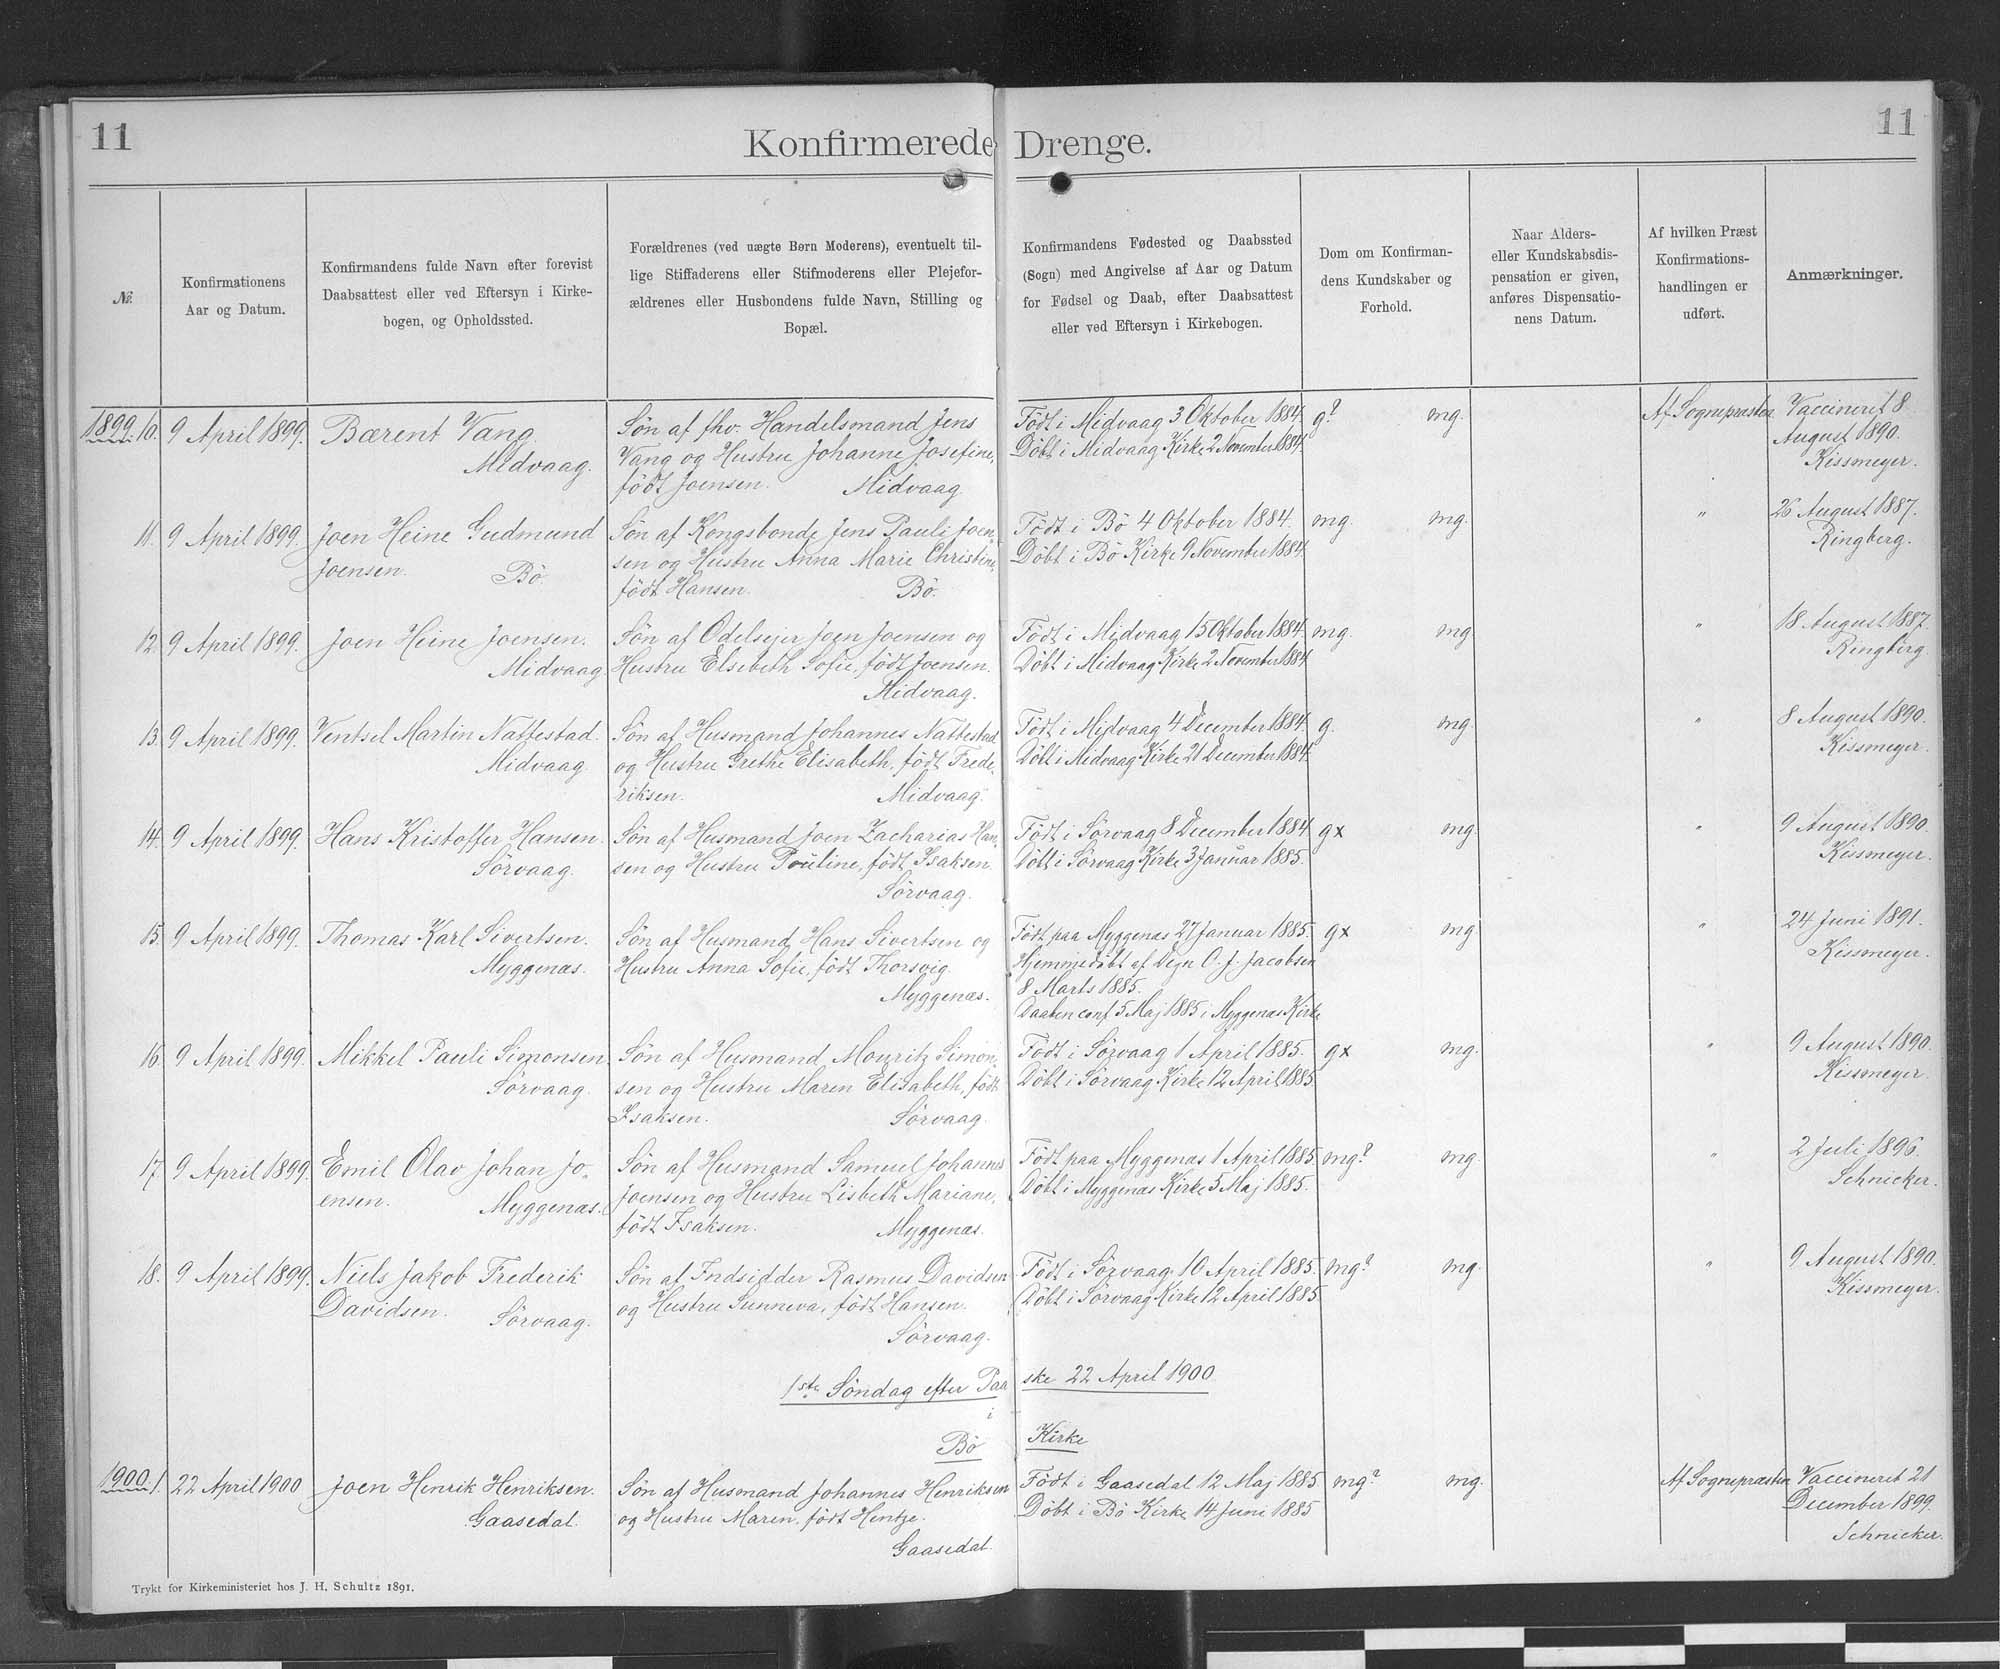 11
Konfirmerede Drenge.
11
№.
Konfirmationens
Aar og Datum.
Konfirmandens fulde Navn efter forevist
Daabsattest eller ved Eftersyn i Kirke-
bogen, og Opholdssted.
Forældrenes (ved uægte Børn Moderens), eventuelt til-
lige Stiffaderens eller Stifmoderens eller Plejefor-
ældrenes eller Husbondens fulde Navn, Stilling og
Bopæl.
Konfirmandens Fødested og Daabssted
(Sogn) med Angivelse af Aar og Datum
for Fødsel og Daab, efter Daabsattest
eller ved Eftersyn i Kirkebogen.
Dom om Konfirman-
dens Kundskaber og
Forhold.
Naar Alders-
eller Kundskabsdis-
pensation er given,
anføres Dispensatio-
nens Datum.
Af hvilken Præst
Konfirmations-
handlingen er
udført.
Anmærkninger.
1899. 10.
9 April 1899.
Bærent Vang.
Midvaag.
Søn af fhv. Handelsmand Jens
Vang og Hustru Johanne Josefine,
født Joensen. Midvaag
Født i Midvaag 3 Oktober 1884.
Døbt i Midvaag Kirke 2 November 1884.
g? mg.
Af Sognepræsten
Vaccineret 8
August 1890.
Kissmeyer.
11.
9 April 1899.
Joen Heine Gudmund
Joensen. Bø
Søn af Kongsbonde Jens Pauli Joen-
sen og Hustru Anna Marie Christine,
født Hansen. Bø.
Født i Bø 4 Oktober 1884.
Døbt i Bø Kirke 9 November 1884.
mg. mg.
"
26 August 1887.
Ringberg.
12
9 April 1899.
Joen Heine Joensen.
Midvaag
Søn af Odelsejer Joen Joensen og
Hustru Elsebeth Sofie, født Joensen.
Midvaag.
Født i Midvaag 15 Oktober 1884.
Døbt i Midvaag Kirke 2 November 1884
mg. mg.
"
18 August 1887.
Ringberg.
13.
9 April 1899.
Ventsel Martin Nattestad.
Midvaag
Søn af Husmand Johannes Nattestad
og Hustru Grethe Elisabeth, født Frede-
riksen. Midvaag.
Født i Midvaag 4 December 1884.
Døbt i Midvaag Kirke 21 December 1884.
g. mg.
"
8 August 1890.
Kissmeyer.
14.
9 April 1899.
Hans Kristoffer Hansen.
Sørvaag.
Søn af Husmand Joen Zacharias Han-
sen og Hustru Pouline, født Isaksen.
Sørvaag.
Født i Sørvaag 8 December 1884
Døbt i Sørvaag Kirke 3 Januar 1885.
gx mg.
"
9 August 1890.
Kissmeyer.
15.
9 April 1899.
Thomas Karl Sivertsen.
Myggenæs.
Søn af Husmand Hans Sivertsen og
Hustru Anna Sofie, født Thorsvig.
Myggenæs.
Født paa Myggenæs 27 Januar 1885.
Hjemmedøbt af Degn O. J. Jacobsen
8 Marts 1885.
Daaben conf. 5 Maj 1885 i Myggenæs Kirke
gx mg.
"
24 Juni 1891.
Kissmeyer.
16.
9 April 1899.
Mikkel Pauli Simonsen
Sørvaag.
Søn af Husmand Mouritz Simon-
sen og Hustru Maren Elisabeth, født
Isaksen. Sørvaag.
Født i Sørvaag 1 April 1885.
Døbt i Sørvaag Kirke 12 April 1885.
gx mg.
"
9 August 1890.
Kissmeyer.
17.
9 April 1899.
Emil Olav Johan Jo-
ensen. Myggenæs.
Søn af Husmand Samuel Johannes
Joensen og Hustru Lisbeth Mariane,
født Isaksen. Myggenæs.
Født paa Myggenæs 1 April 1885.
Døbt i Myggenæs Kirke 5 Maj 1885.
mg? mg.
"
2 Juli 1896.
Schnicker.
18.
9 April 1899.
Niels Jakob Frederik
Davidsen. Sørvaag.
Søn af Indsidder Rasmus Davidsen
og Hustru Sunneva, født Hansen.
Sørvaag.
Født i Sørvaag 10 April 1885.
Døbt i Sørvaag Kirke 12 April 1885.
mg? mg.
"
9 August 1890.
Kissmeyer.
1ste Søndag efter Paaske 22 April 1900
i
Bø Kirke
1900. 1.
22 April 1900
Joen Henrik Henriksen.
Gaasedal.
Søn af Husmand Johannes Henriksen
og Hustru Maren, født Hentze.
Gaasedal.
Født i Gaasedal 12 Maj 1885
Døbt i Bø Kirke 14 Juni 1885
mg? mg.
Af Sognepræsten
Vaccineret 21
December 1899.
Schnicker.
Trykt for Kirkeministeriet hos J. H. Schultz 1891.